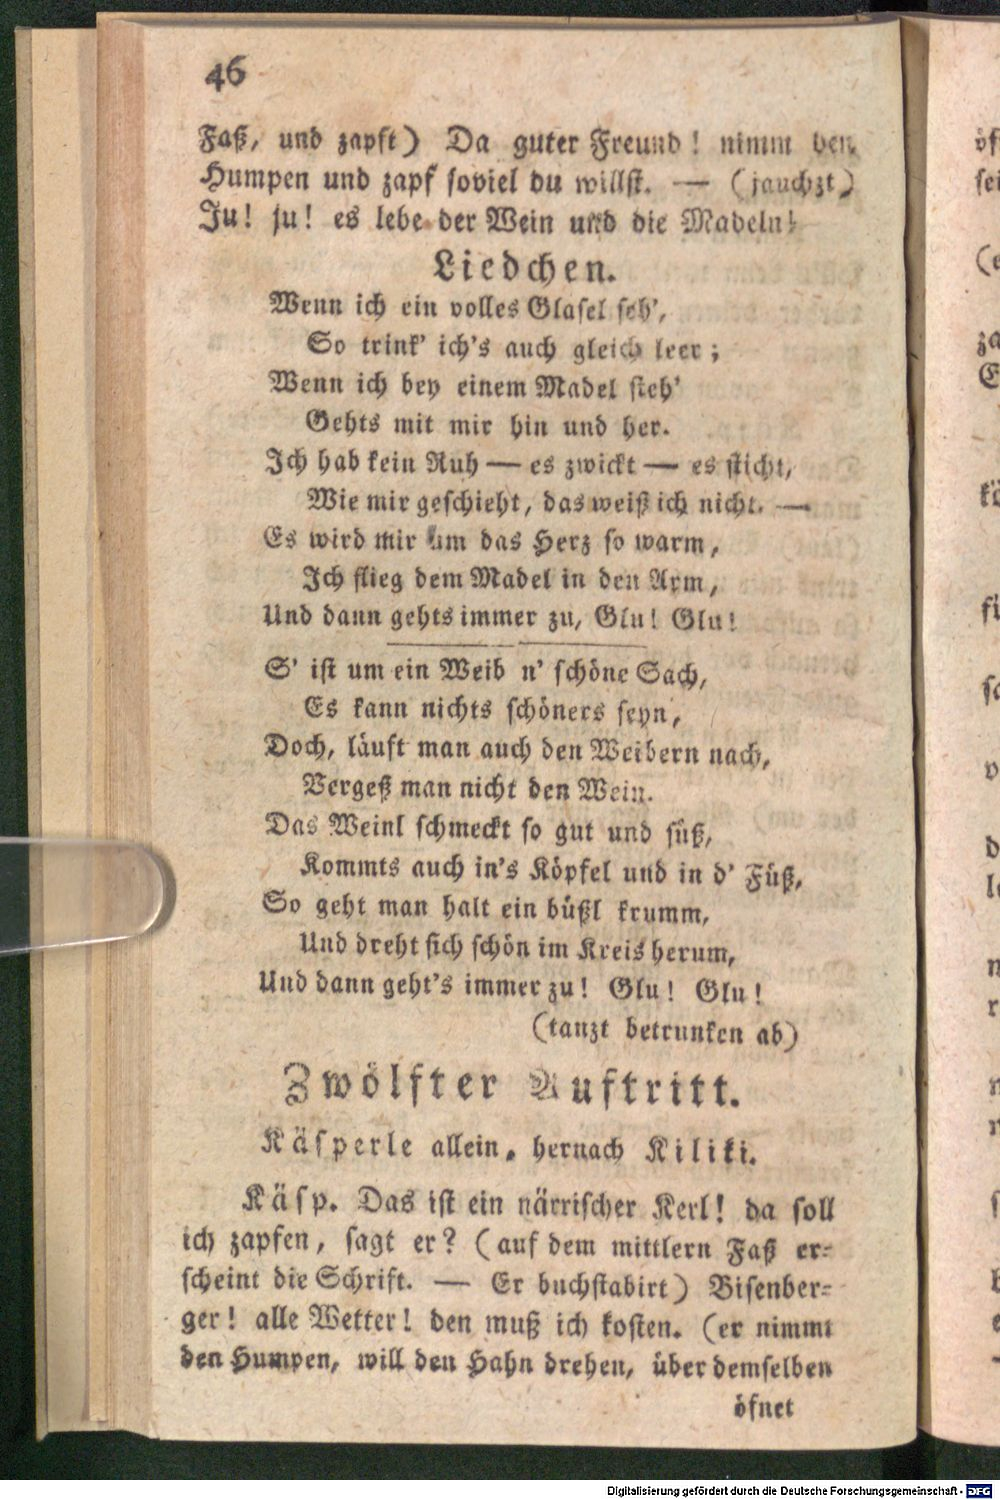 46
Faß, und zapft) Da guter Freund! nimm den
Humpen und zapf soviel du willst. — (jauchzt)
Ju! ju! es lebe der Wein und die Madeln!
Liedchen.
Wenn ich ein volles Glasel seh',
So trink' ich's auch gleich leer;
Wenn ich bey einem Madel steh'
Gehts mit mir hin und her.
Ich hab kein Ruh — es zwickt — es sticht,
Wie mir geschieht, das weiß ich nicht. —
Es wird mir um das Herz so warm,
Ich flieg dem Madel in den Arm,
Und dann gehts immer zu, Glu! Glu!
S' ist um ein Weib n' schöne Sach,
Es kann nichts schöners seyn,
Doch, läuft man auch den Weibern nach,
Vergeß man nicht den Wein.
Das Weinl schmeckt so gut und süß,
Kommts auch in's Köpfel und in d' Füß,
So geht man halt ein büßl krumm,
Und dreht sich schön im Kreis herum,
Und dann geht's immer zu! Glu! Glu!
(tanzt betrunken ab)
Zwölfter Auftritt.
Käsperle allein, hernach Kiliki.
Käsp. Das ist ein närrischer Kerl! da soll
ich zapfen, sagt er? (auf dem mittlern Faß er-
scheint die Schrift. — Er buchstabirt) Bisenber-
ger! alle Wetter! den muß ich kosten. (er nimmt
den Humpen, will den Hahn drehen, über demselben
öfnet
Digitalisierung gefördert durch die Deutsche Forschungsgemeinschaft - DFG